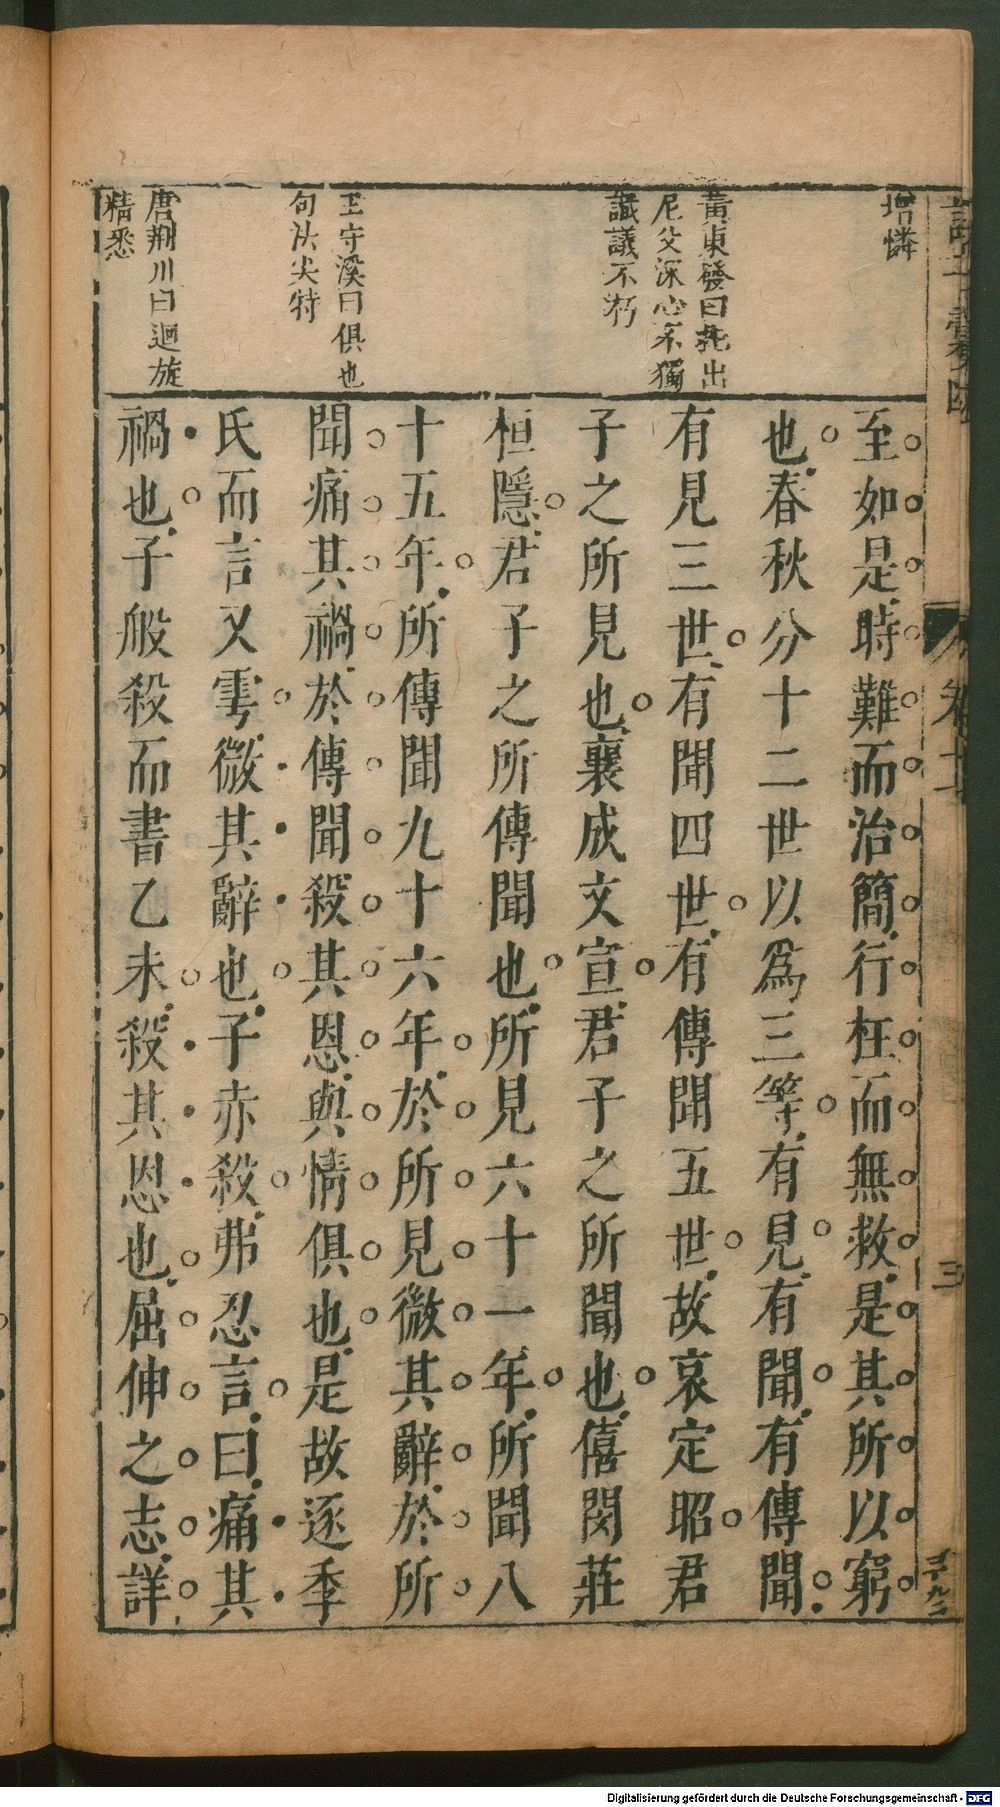 增憐
黃東發曰
尼父深心不獨
識議不朽
王守溪曰俱也
句法尖特
唐荊川曰迴旋
精悉
至如是時難而治簡行枉而無救是其所以窮
也春秋分十二世以爲三等有見有聞有傳聞
有見三世有聞四世有傳聞五世故哀定昭君
子之所見也襄成文宣君子之所聞也僖閔莊
桓隱君子之所傳聞也所見六十一年所聞八
十五年所傳聞九十六年於所見微其辭於所
聞痛其禍於傳聞殺其恩與情俱也是故逐季
氏而言又雩微其辭也子赤殺弗忍言曰痛其
禍也子般殺而書乙未殺其恩也屈伸之志詳
三
Digitalisierung gefördert durch die Deutsche Forschungsgemeinschaft - DFG